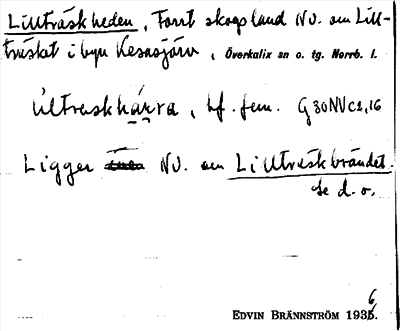 Lillträskheden, Torrt skogsland NV. om Lill-
träsket i byn Kesasjärv, Överkalix sn o. tg. Norrb. l.
lilträskhárra, bf. fem. G30NVc2,16
Ligger NV. om Lillträskbrändet.
Se d. o.
EDVIN BRÄNNSTRÖM 1936.